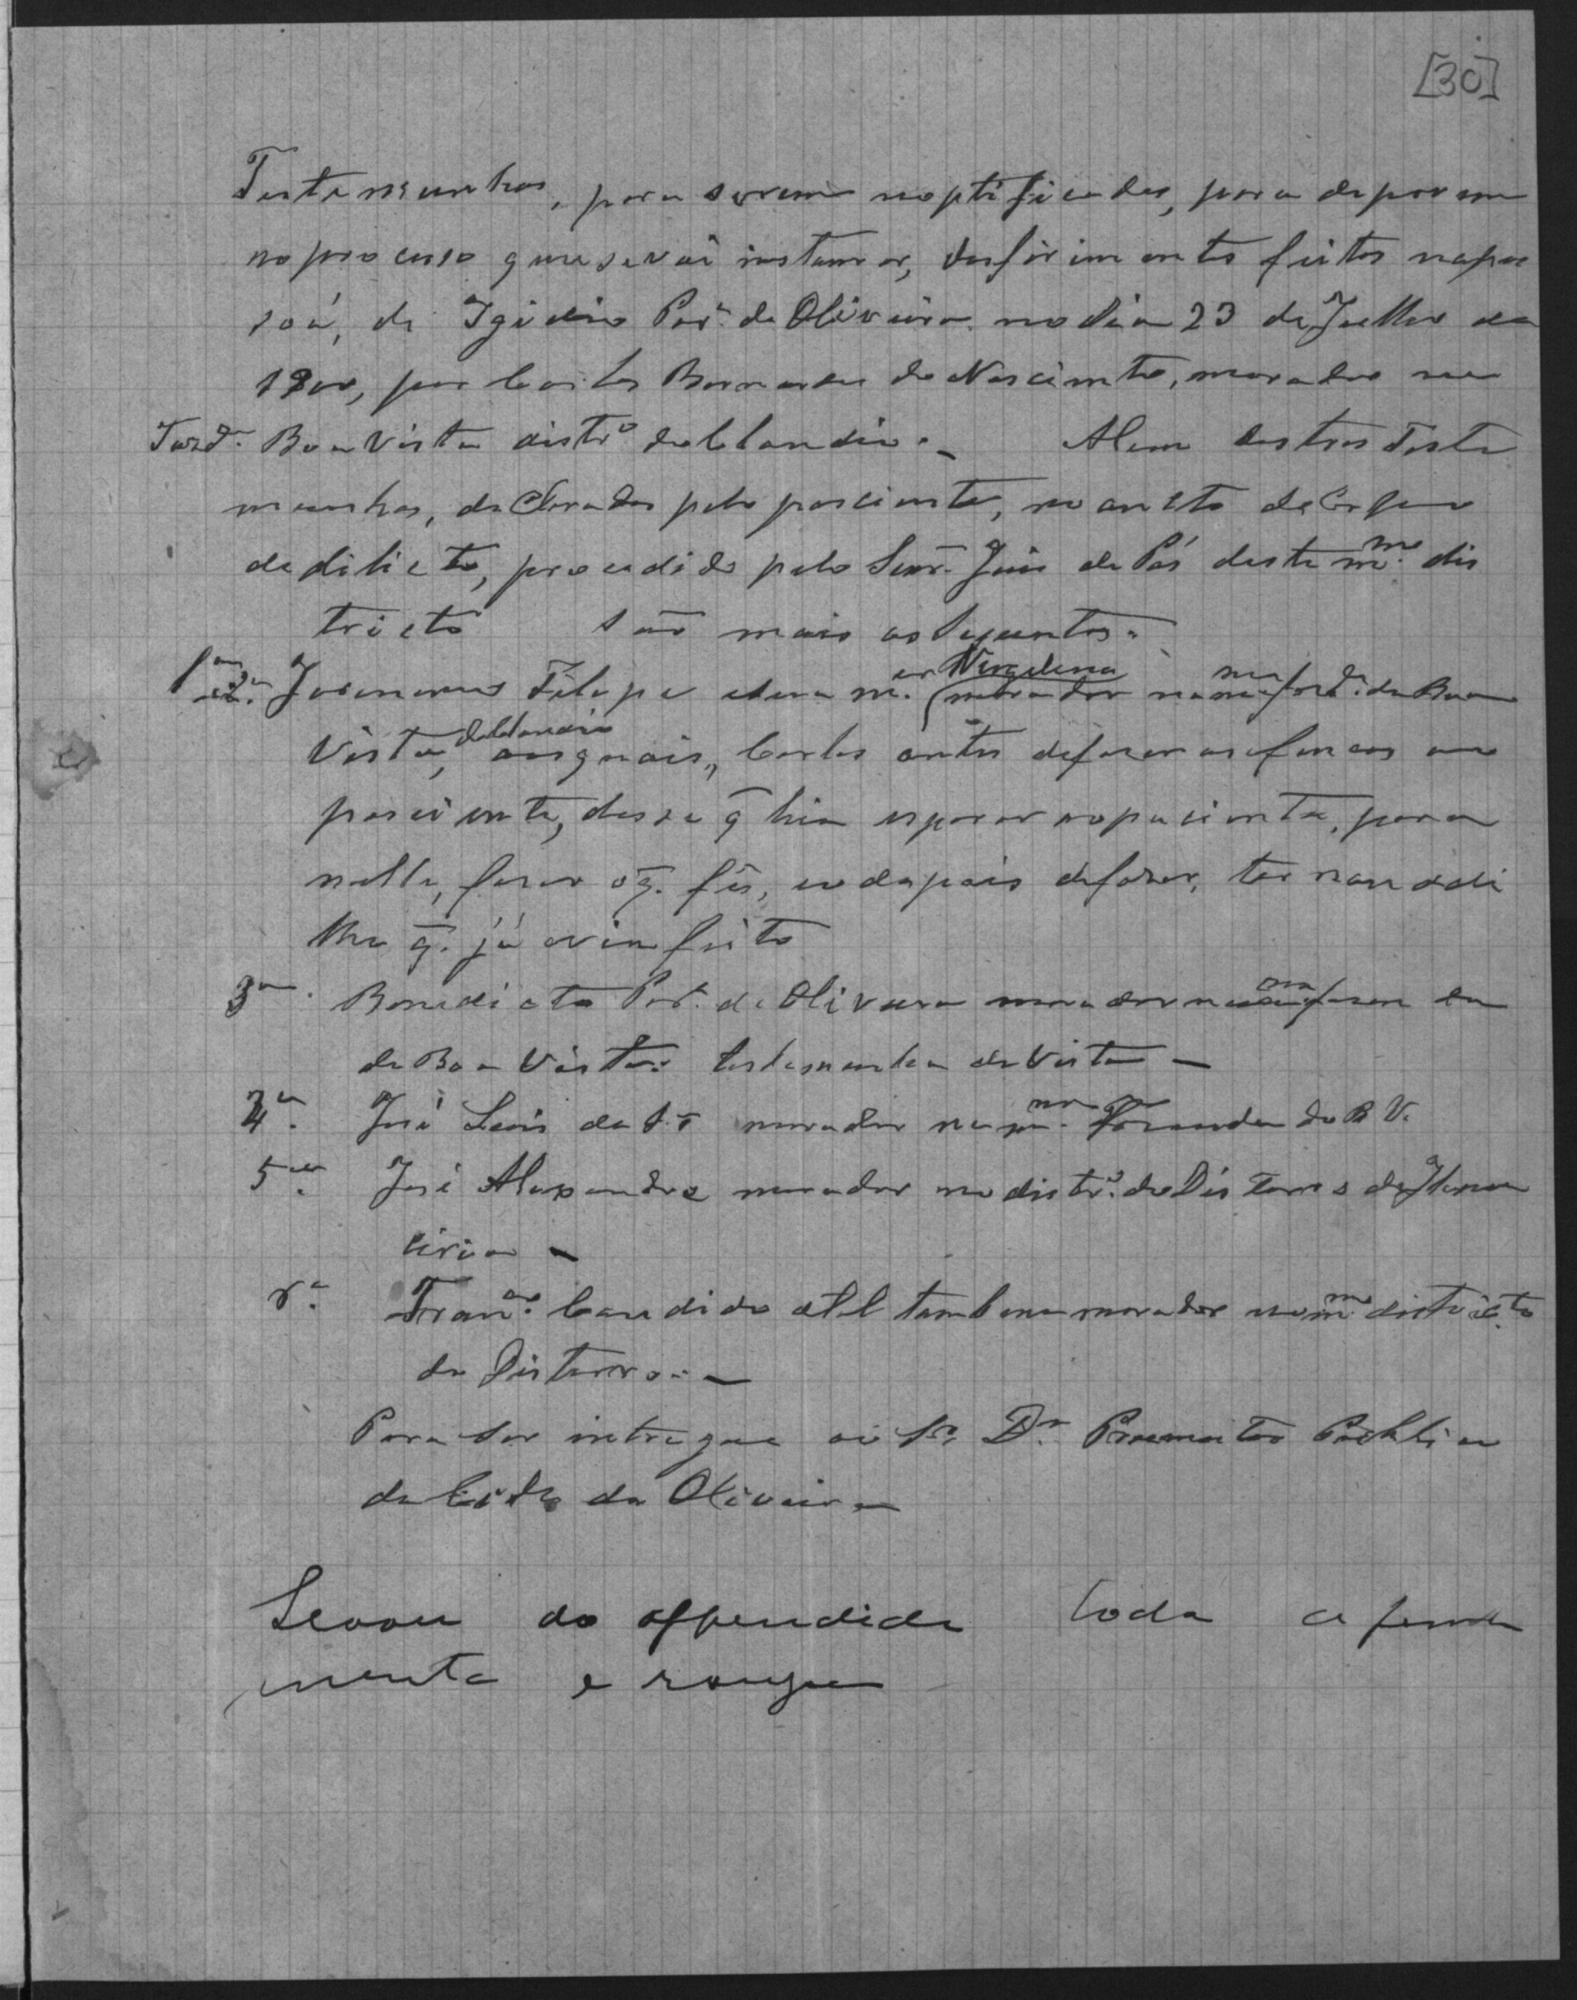 [30]
Testemunhas, para serem noptificadas, para deporem
no processo que se vai instaurar, de ferimentos feitos na pes
soá, de Igidio Per.ª de Oliveira no dia 23 de Julho de
1900, por Carlos Bernardes do Nascimto, morador na
Fazd.ª Boa Vista distr.º de Claudio. Alem destas Teste
munhas, declaradas pelo pasciente, no aucto de Corpo
de delicto, procedido pelo Senr. Juis de Pás deste m.mo dis
tricto são mais as Seguentes.
1.ª e 2.ª Felipe e sua m.er Vergelena morador na m.ma fasd.ª da Boa
Vista, de Claudio aos quais, Carlos antes de faser as ofenças ao
pasciente, disse q̃ hia esperar o paciente, para
nelle, faser o q̃. fes, e depois de faser, tornou a di
lhe q̃. já avia feito
3.ª Benedicto Per.ª de Oliveira morador na m.ma fasenda
da Boa Vista: testemunha de Vista —
4.ª José Luis da S.ª morador na m.ma Fasenda da B V.
5.ª José Alexandre morador no distr.º do Disterro de
6.ª Fran.co Candido tambem morador no m.mo districto
do Disterro. —
Para ser intregue ao Sr. Dr. Promotor Publico
da Cid.e de Oliveira
Levou do offendido toda a ferra
menta e roupa